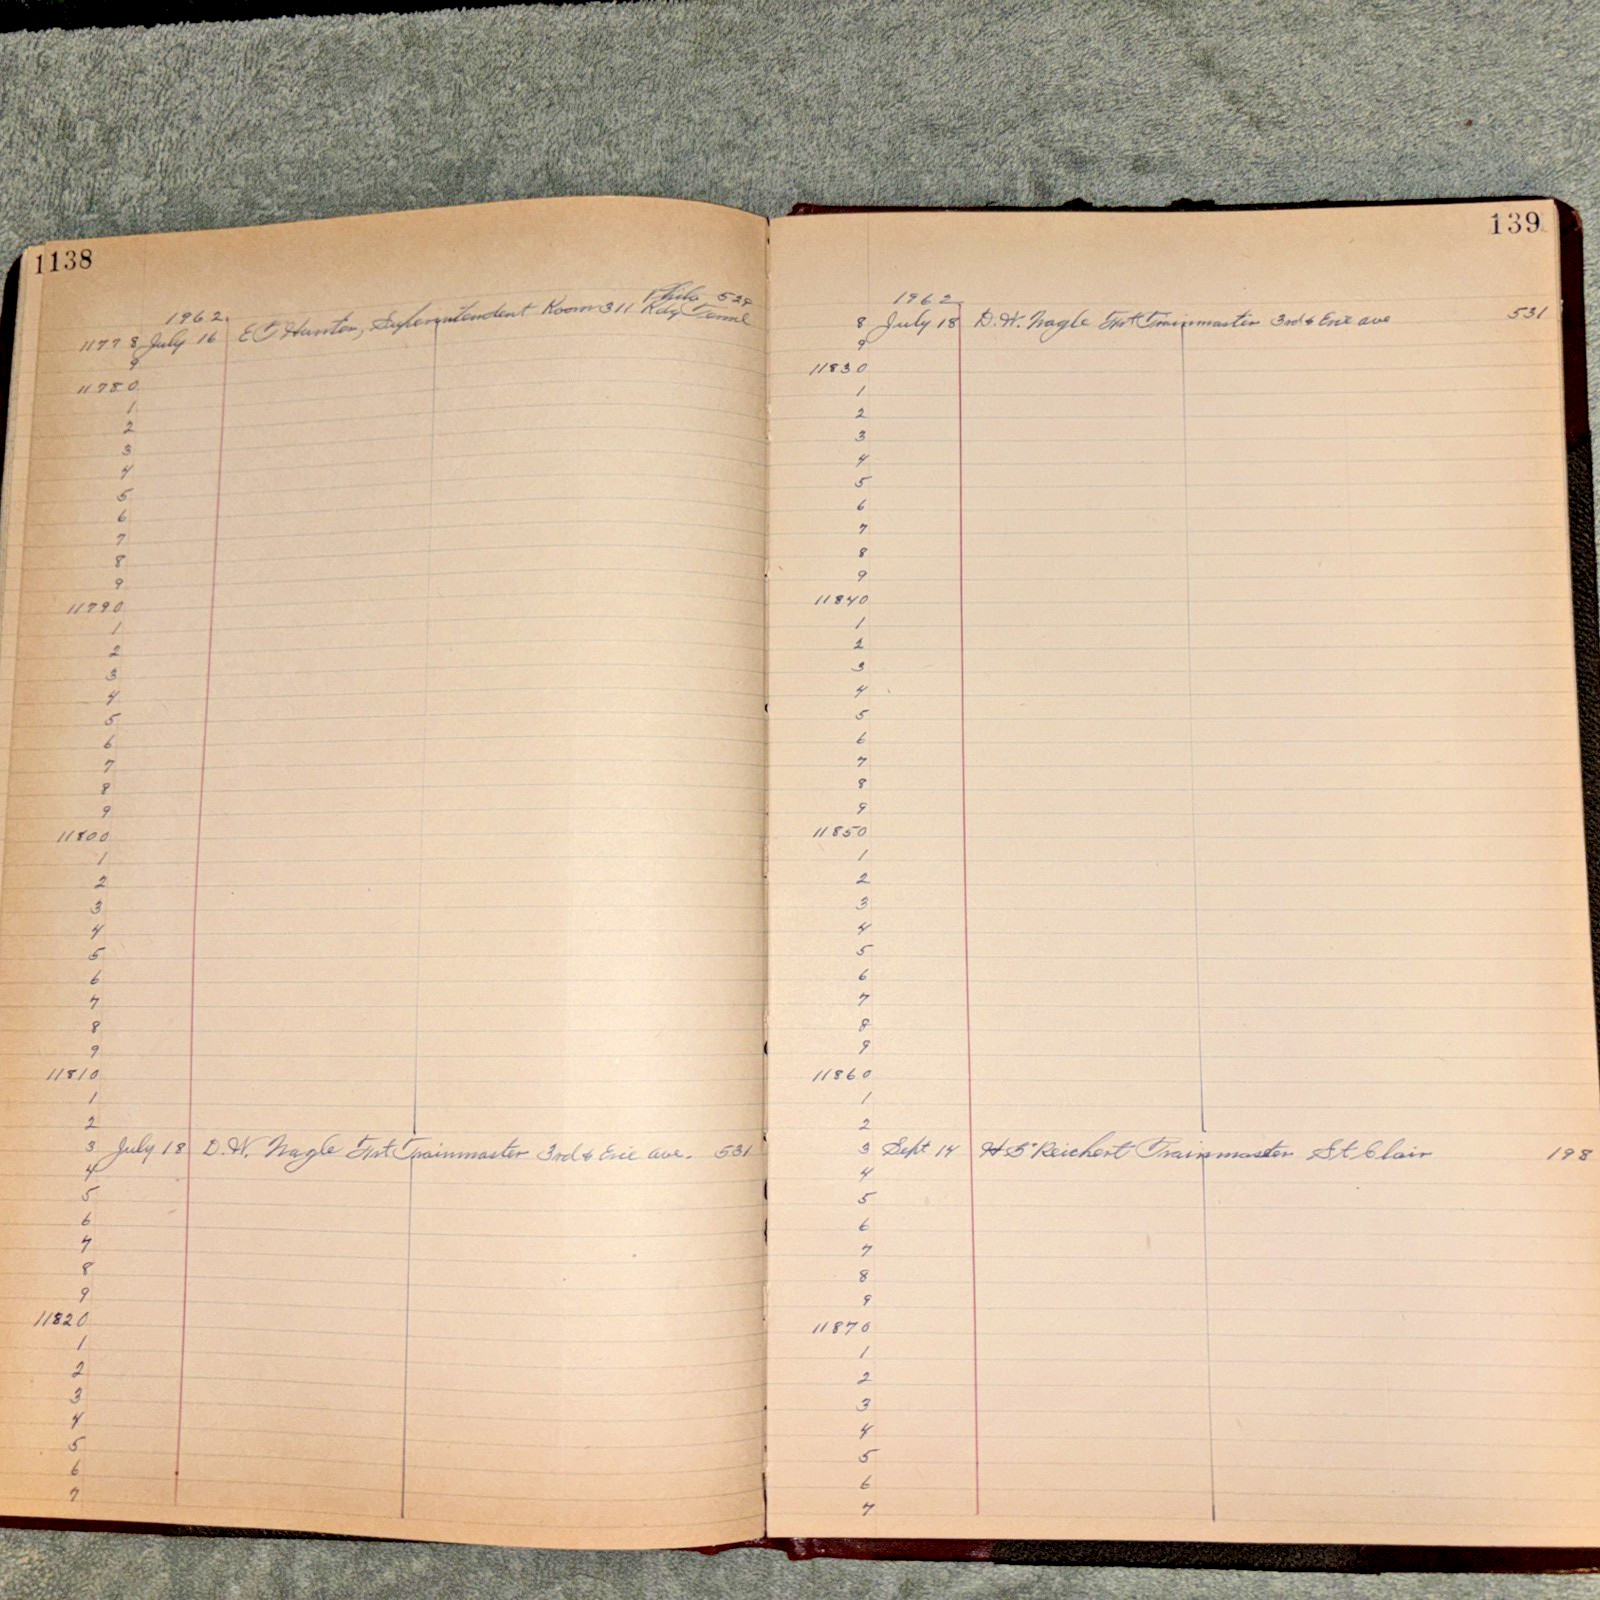 1138
Phila 529
1962
11778 July 16 E Hunter, Superintendent Room 311 Rdg Terml
9
11780
1
2
3
4
5
6
7
8
9
11790
1
2
3
4
5
6
7
8
9
11800
1
2
3
4
5
6
7
8
9
11810
1
2
3 July 18 D.W. Nagle Frt Trainmaster 3rd & Erie ave. 531
4
5
6
7
8
9
11820
1
2
3
4
5
6
7
139
1962
8 July 18 D.W. Nagle Frt Trainmaster 3rd & Erie ave 531
9
11830
1
2
3
4
5
6
7
8
9
11840
1
2
3
4
5
6
7
8
9
11850
1
2
3
4
5
6
7
8
9
11860
1
2
3 Sept 14 H S Reichert Trainmaster St Clair 198
4
5
6
7
8
9
11870
1
2
3
4
5
6
7